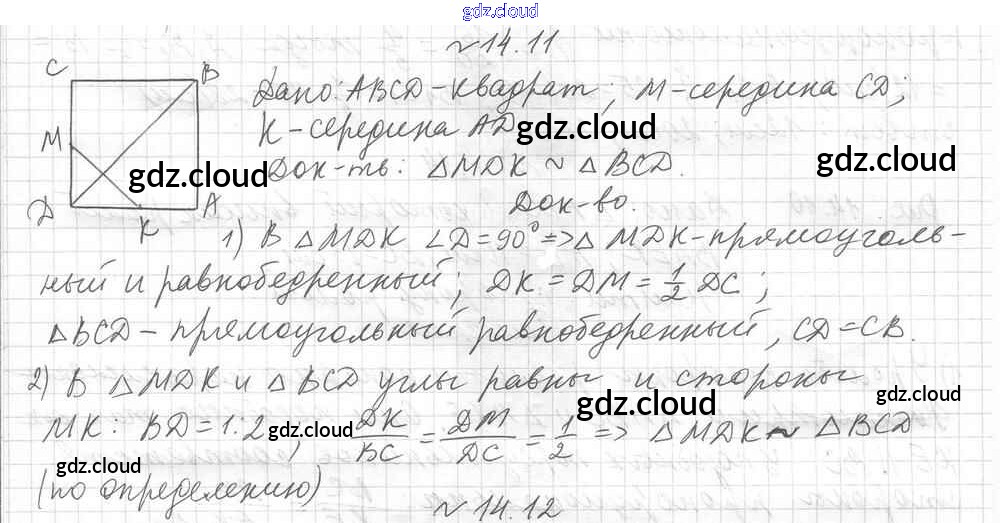 gdz.cloud
№14.11
C B
Дано: ABCD-квадрат; M-середина CD;
M
K-середина AD gdz.cloud gdz.cloud
gdz.cloud Док-ть: △MDK ~ △BCD.
D K A
Док-во.
1) В △MDK ∠D=90°=>△MDK-прямоуголь-
ный и равнобедренный; DK=DM=1/2 DC;
△BCD-прямоугольный равнобедренный, CD=CB.
2) В △MDK и △BCD углы равны и стороны
gdz.cloud gdz.cloud
MK:BD=1:2, gdz.cloud DK/BC = DM/DC = 1/2 => △MDK ~ △BCD
gdz.cloud
(по определению)
№14.12